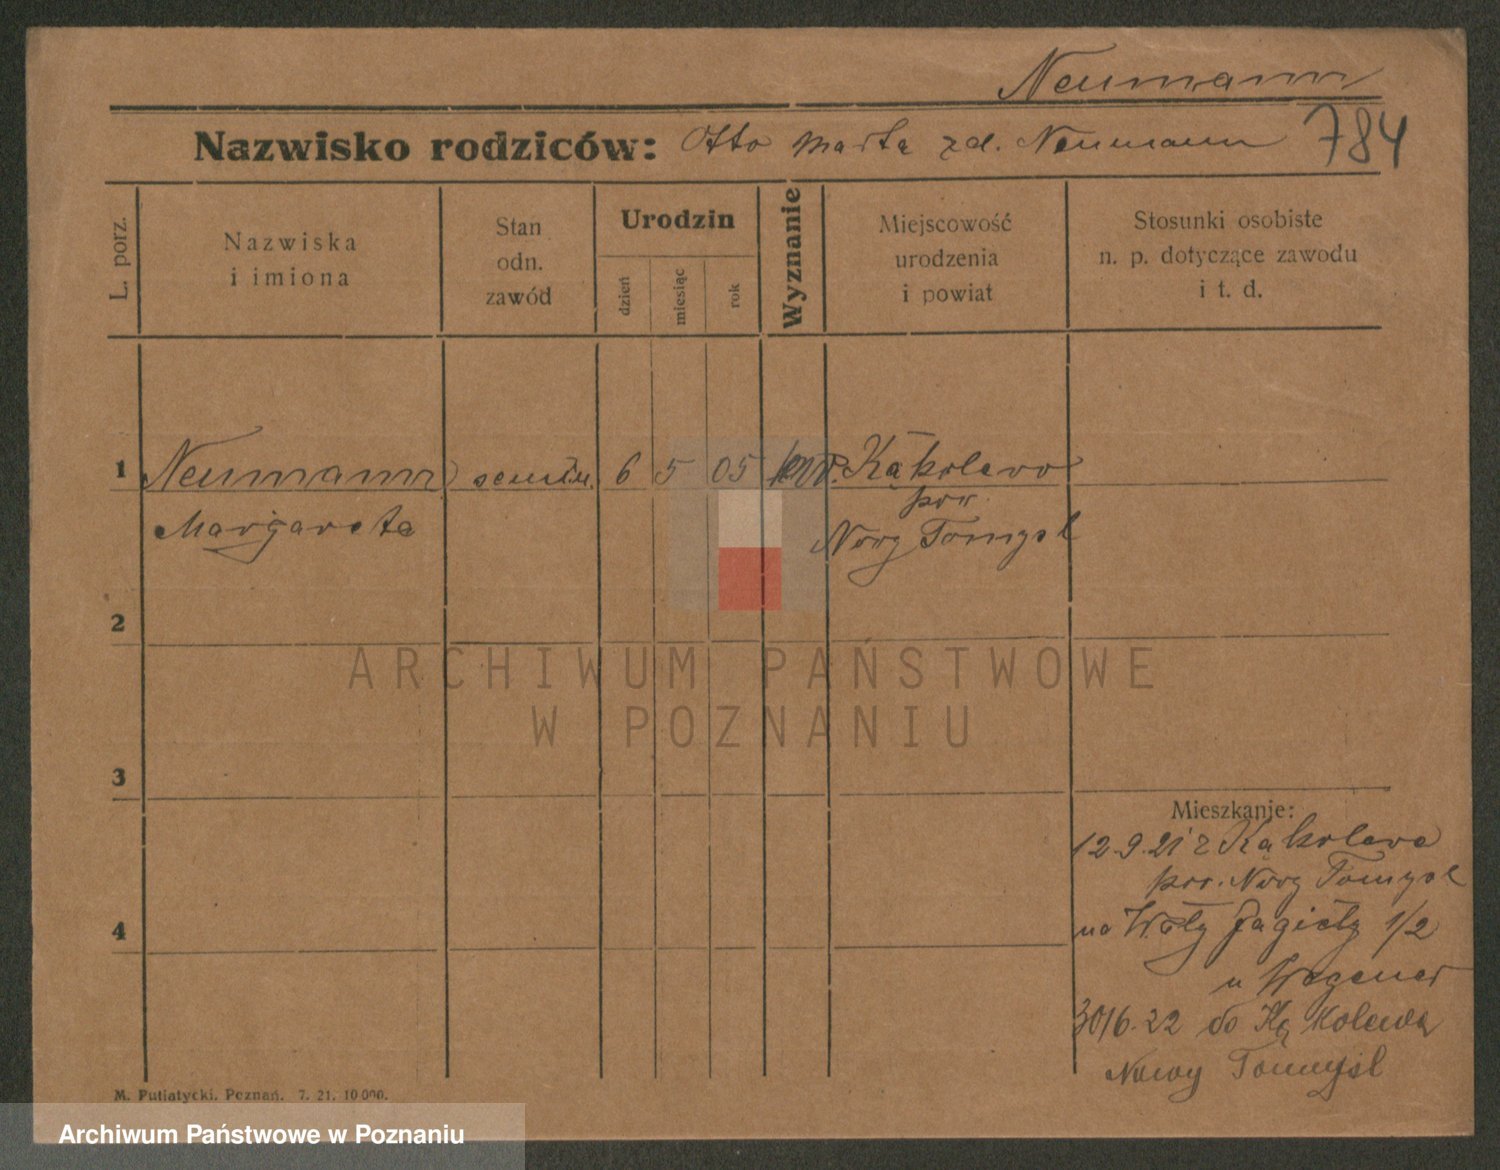 Neumann
Nazwisko rodziców: Otto Marta zd. Neumann 784
L. porz.
Nazwiska
i imiona
Stan
odn.
zawód
Urodzin
dzień
miesiąc
rok
Wyznanie
Miejscowość
urodzenia
i powiat
Stosunki osobiste
n. p. dotyczące zawodu
i t. d.
1 Neumann 6 5 05 Kąkolewo
pow.
Margareta Nowy Tomysl
2
ARCHIWUM PAŃSTWOWE
W POZNANIU
3
Mieszkanie:
12.9.21 z Kąkolewa
pow. Nowy Tomysl
4 na Wały Jagiełły 1/2
u Wegener
30/6.22 do Kąkolewa
Nowy Tomyśl
M. Putiatycki. Poznań. 7. 21. 10 000.
Archiwum Państwowe w Poznaniu